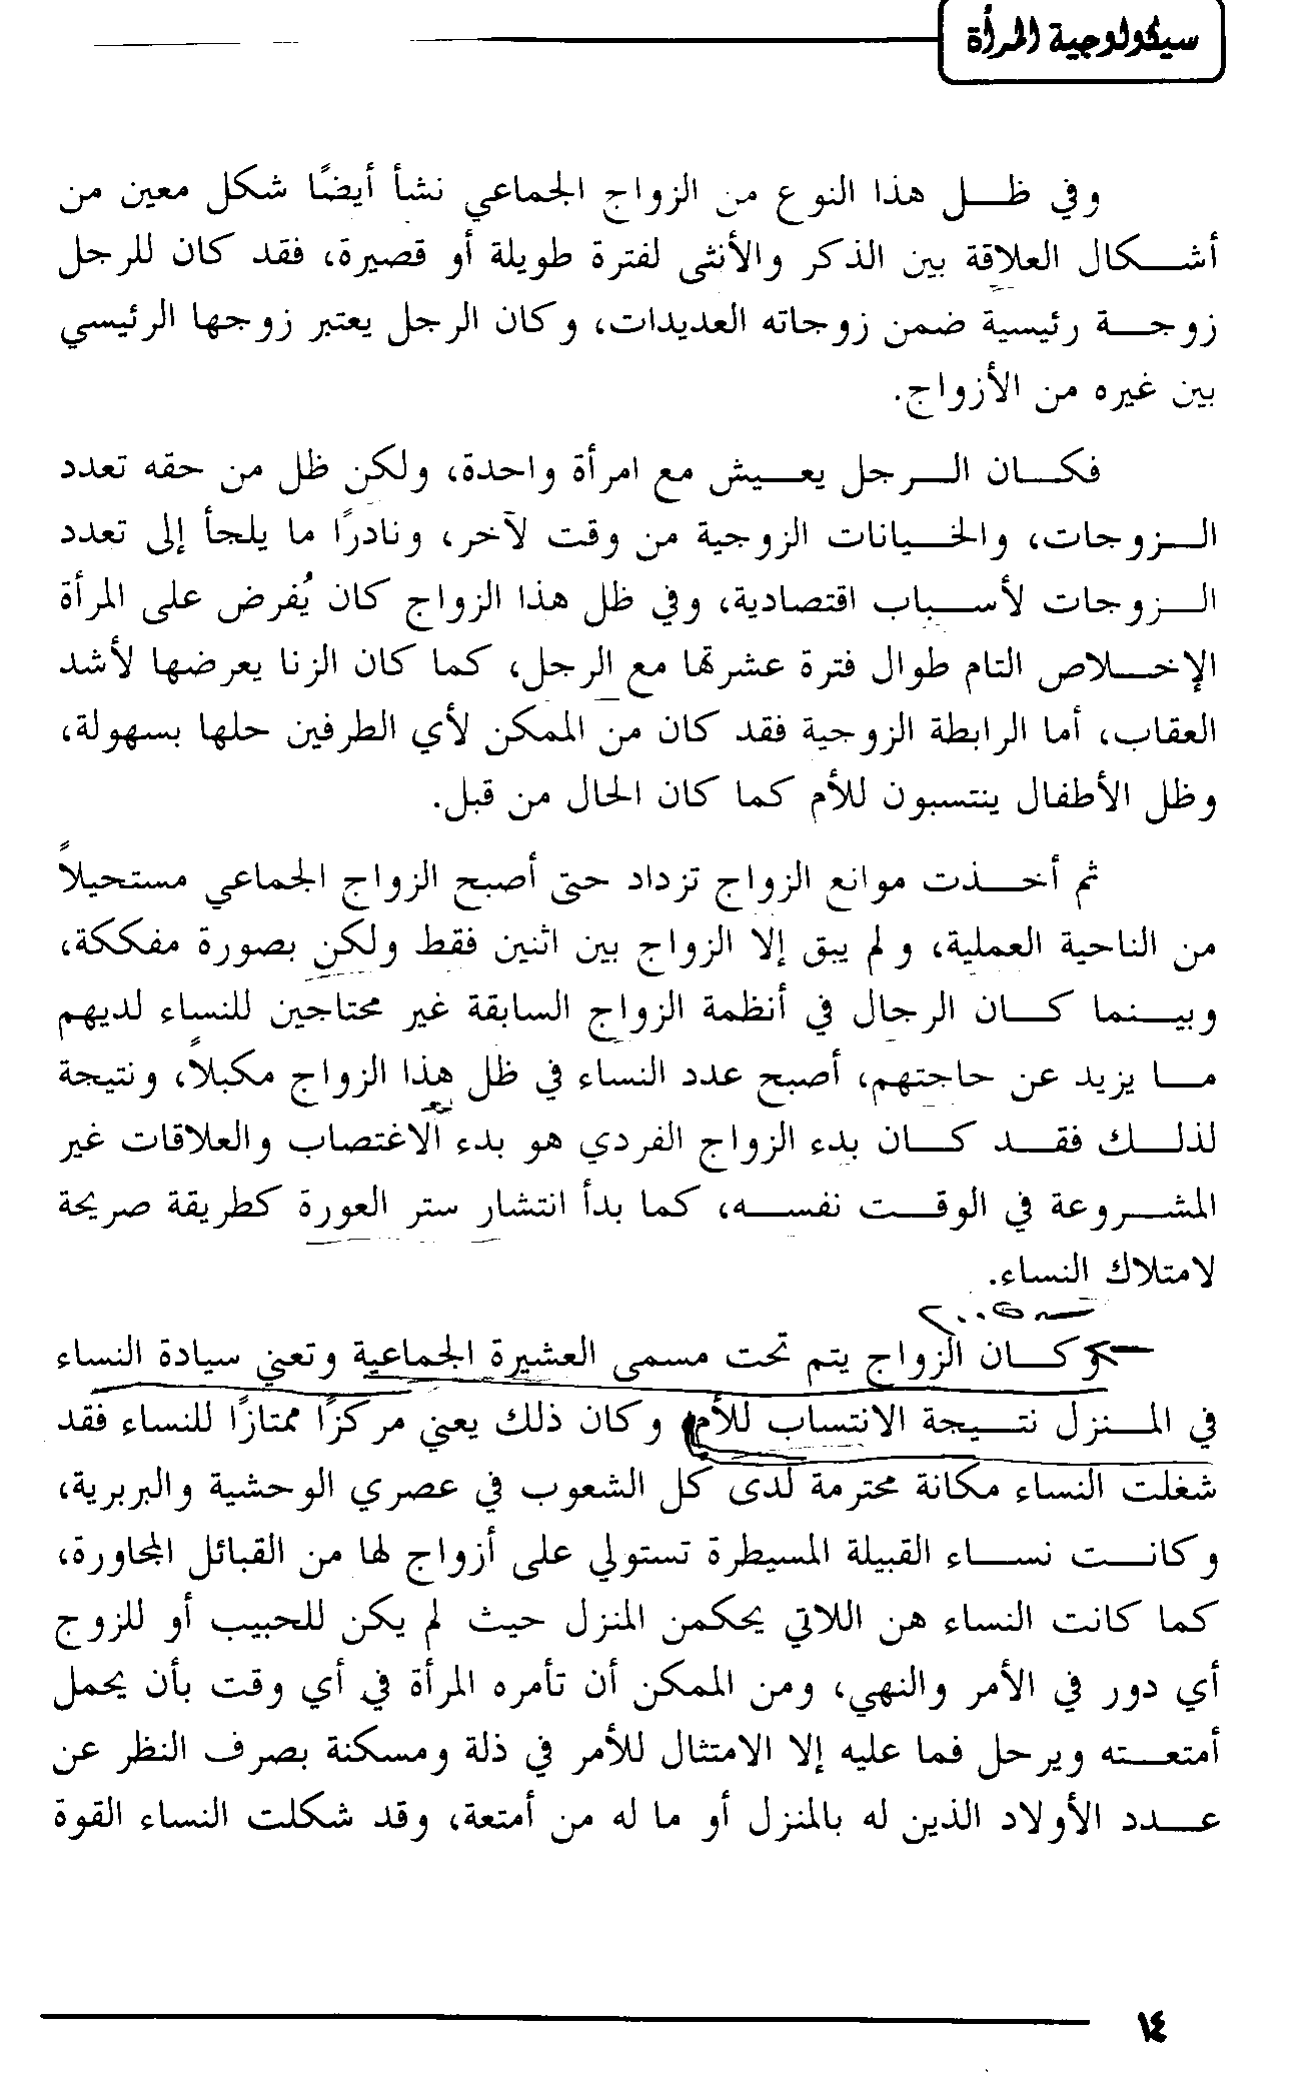 سيكولوجية المرأة
وفي ظل هذا النوع من الزواج الجماعي نشأ أيضًا شكل معين من
أشكال العلاقة بين الذكر والأنثى لفترة طويلة أو قصيرة، فقد كان للرجل
زوجة رئيسية ضمن زوجاته العديدات، وكان الرجل يعتبر زوجها الرئيسي
بين غيره من الأزواج.
فكان الرجل يعيش مع امرأة واحدة، ولكن ظل من حقه تعدد
الزوجات، والخيانات الزوجية من وقت لآخر، ونادرًا ما يلجأ إلى تعدد
الزوجات لأسباب اقتصادية، وفي ظل هذا الزواج كان يُفرض على المرأة
الإخلاص التام طوال فترة عشرتها مع الرجل، كما كان الزنا يعرضها لأشد
العقاب، أما الرابطة الزوجية فقد كان من الممكن لأي الطرفين حلها بسهولة،
وظل الأطفال ينتسبون للأم كما كان الحال من قبل.
ثم أخذت موانع الزواج تزداد حتى أصبح الزواج الجماعي مستحيلاً
من الناحية العملية، ولم يبق إلا الزواج بين اثنين فقط ولكن بصورة مفككة،
وبينما كان الرجال في أنظمة الزواج السابقة غير محتاجين للنساء لديهم
ما يزيد عن حاجتهم، أصبح عدد النساء في ظل هذا الزواج مكبلاً، ونتيجة
لذلك فقد كان بدء الزواج الفردي هو بدء الاغتصاب والعلاقات غير
المشروعة في الوقت نفسه، كما بدأ انتشار ستر العورة كطريقة صريحة
لامتلاك النساء.
وكان الزواج يتم تحت مسمى العشيرة الجماعية وتعني سيادة النساء
في المنزل نتيجة الانتساب للأم وكان ذلك يعني مركزًا ممتازًا للنساء فقد
شغلت النساء مكانة محترمة لدى كل الشعوب في عصري الوحشية والبربرية،
وكانت نساء القبيلة المسيطرة تستولي على أزواج لها من القبائل المجاورة،
كما كانت النساء هن اللاتي يحكمن المنزل حيث لم يكن للحبيب أو للزوج
أي دور في الأمر والنهي، ومن الممكن أن تأمره المرأة في أي وقت بأن يحمل
أمتعته ويرحل فما عليه إلا الامتثال للأمر في ذلة ومسكنة بصرف النظر عن
عدد الأولاد الذين له بالمنزل أو ما له من أمتعة، وقد شكلت النساء القوة
١٤